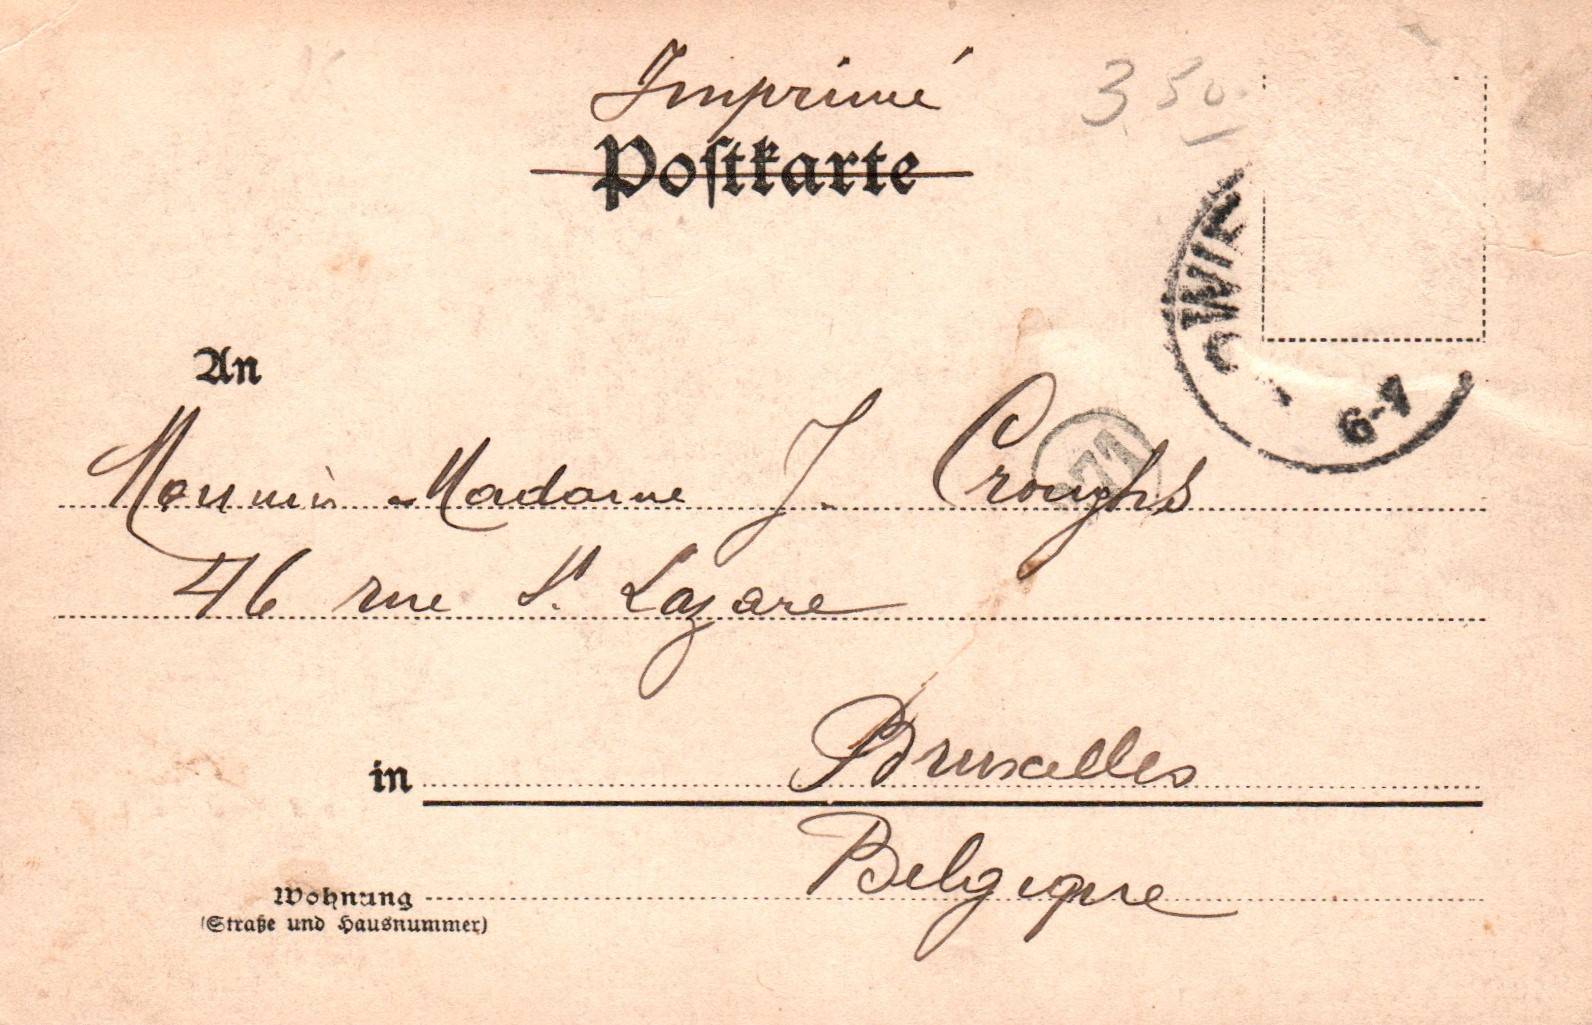 Imprimé
3.50
Postkarte
6-7
An
271
Monsieur - Madame J. Croughs
46 rue St. Lazare
in Bruxelles
Belgique
Wohnung
(Straße und Hausnummer)